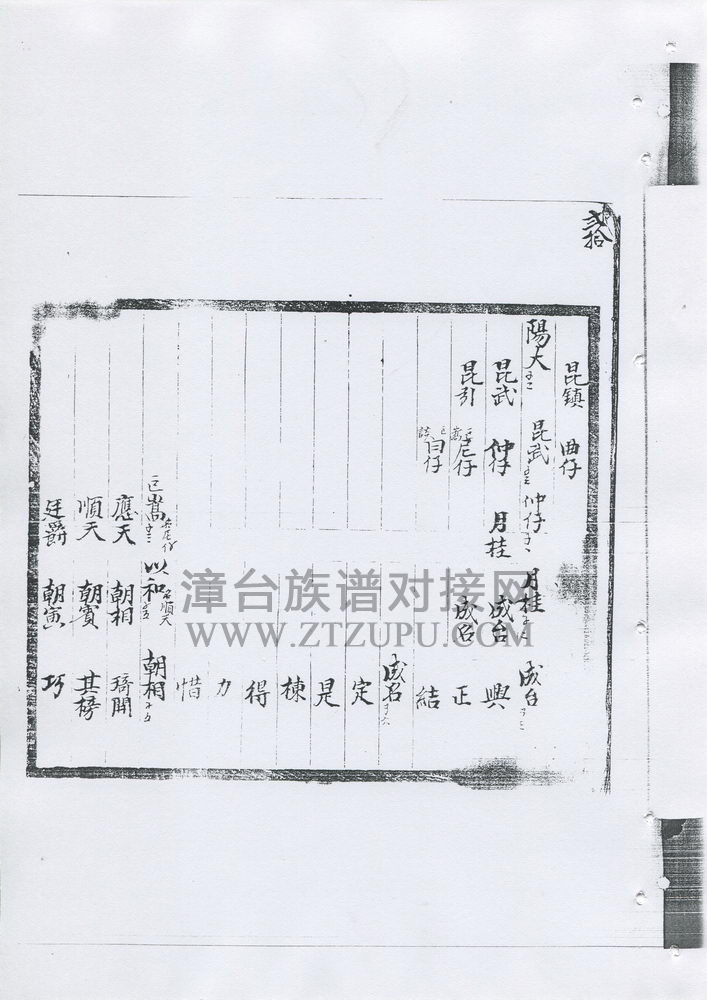 弍拾
昆鎮 曲仔
陽大 昆武 仲仔 月桂 成台
昆武 仲仔 月桂 成台 興
昆引 尼仔 成名 正
白仔 結
成名
定
是
棟
得
力
惜
巨嵩 以和 名順天 朝相
應天 朝相 琦開
順天 朝賓 其榜
廷爵 朝寅 巧
漳台族谱对接网
WWW.ZTZUPU.COM